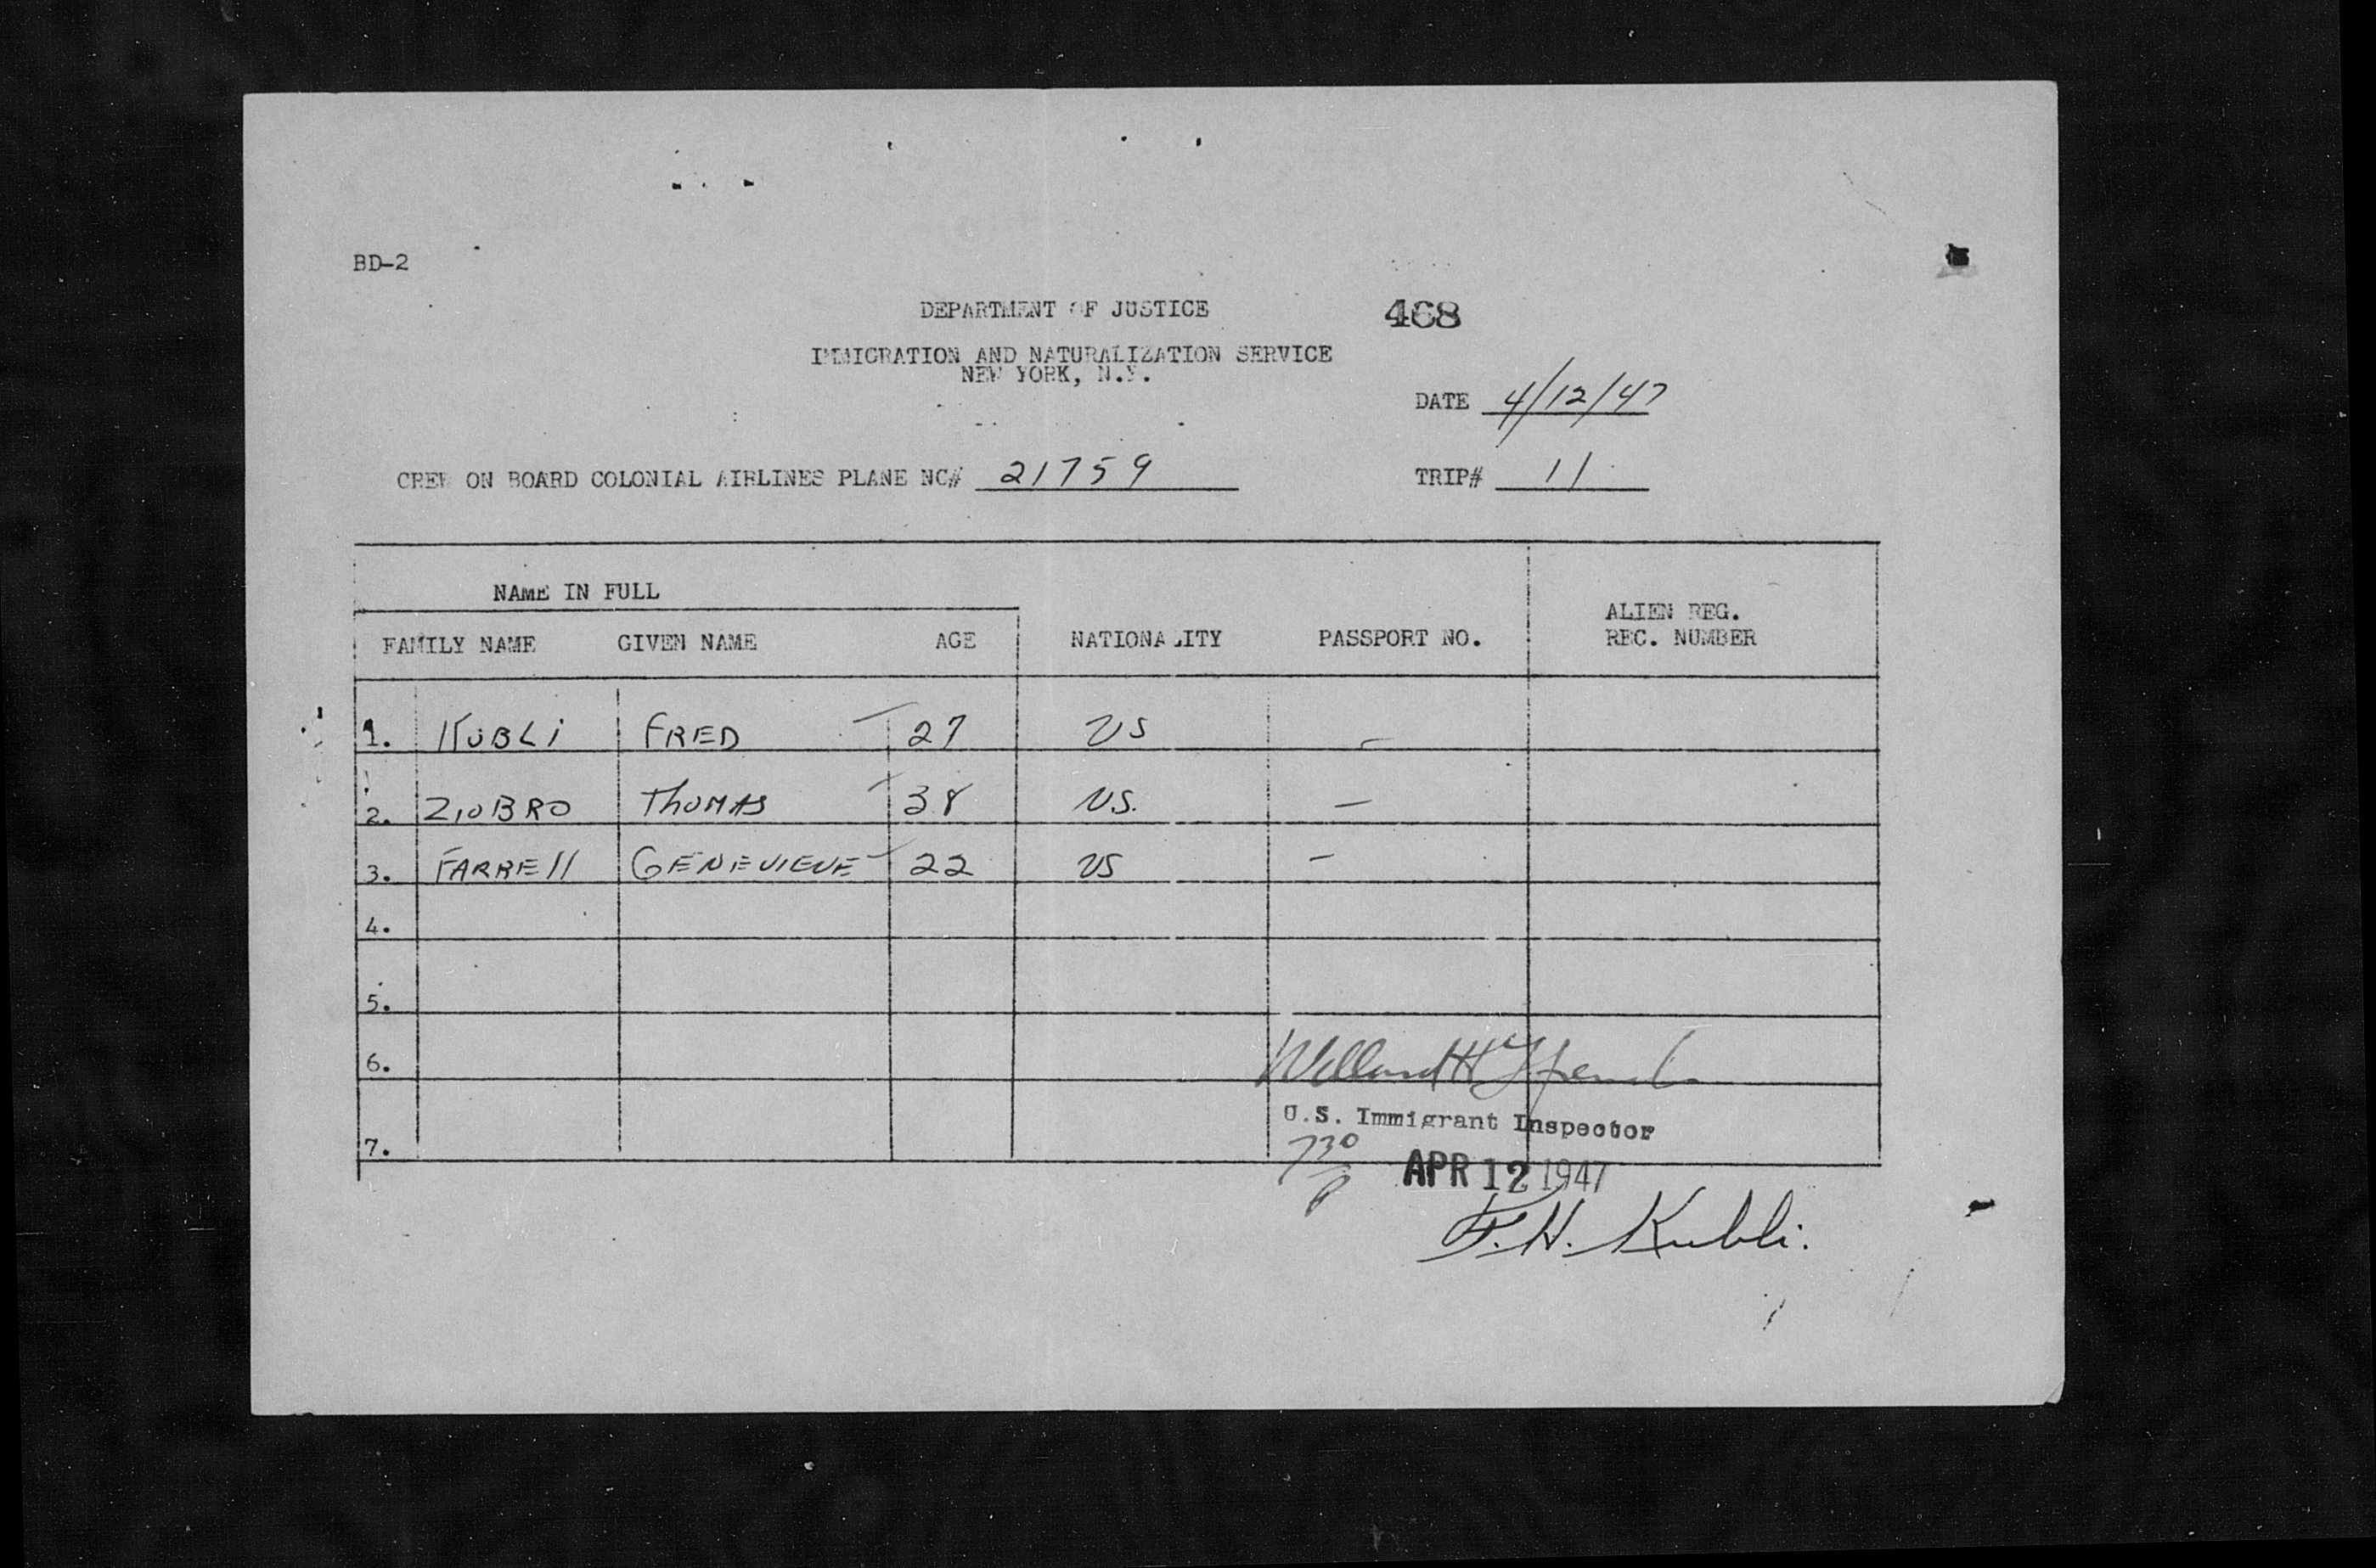 BD-2
DEPARTMENT OF JUSTICE 468
IMMIGRATION AND NATURALIZATION SERVICE
NEW YORK, N.Y.
DATE 4/12/47
CREW ON BOARD COLONIAL AIRLINES PLANE NC# 21759 TRIP# 11
NAME IN FULL
ALIEN REG.
FAMILY NAME GIVEN NAME AGE NATIONALITY PASSPORT NO. REC. NUMBER
1. KUBLi FRED 27 US –
2. ZIOBRO THOMAS 38 U.S. –
3. FARREll GENEVIEVE 22 US –
4.
5.
6.
Willard H
U.S. Immigrant Inspector
7. 730
P
APR 12 1947
F.H. Kubli.